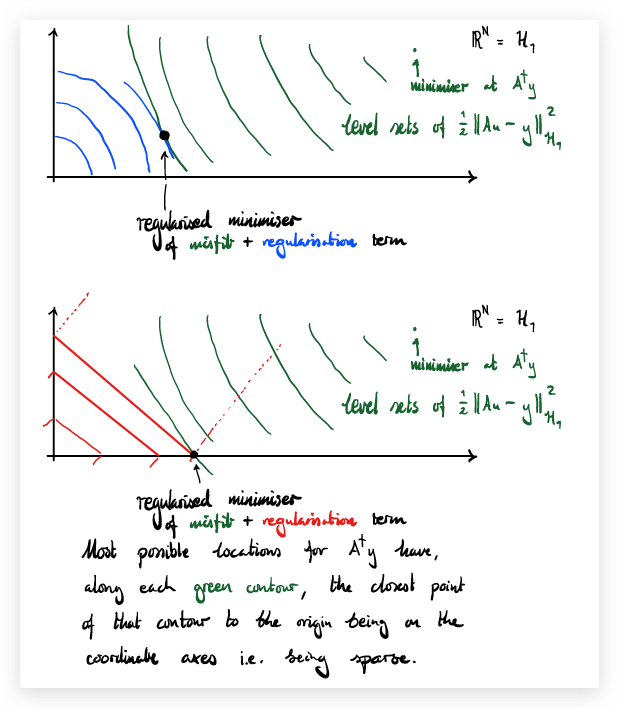 ℝᴺ = H₁
minimiser at A†y
level sets of ½‖Au − y‖²_H₁
regularised minimiser
of misfit + regularisation term
ℝᴺ = H₁
minimiser at A†y
level sets of ½‖Au − y‖²_H₁
regularised minimiser
of misfit + regularisation term
Most possible locations for A†y have,
along each green contour, the closest point
of that contour to the origin being on the
coordinate axes i.e. being sparse.